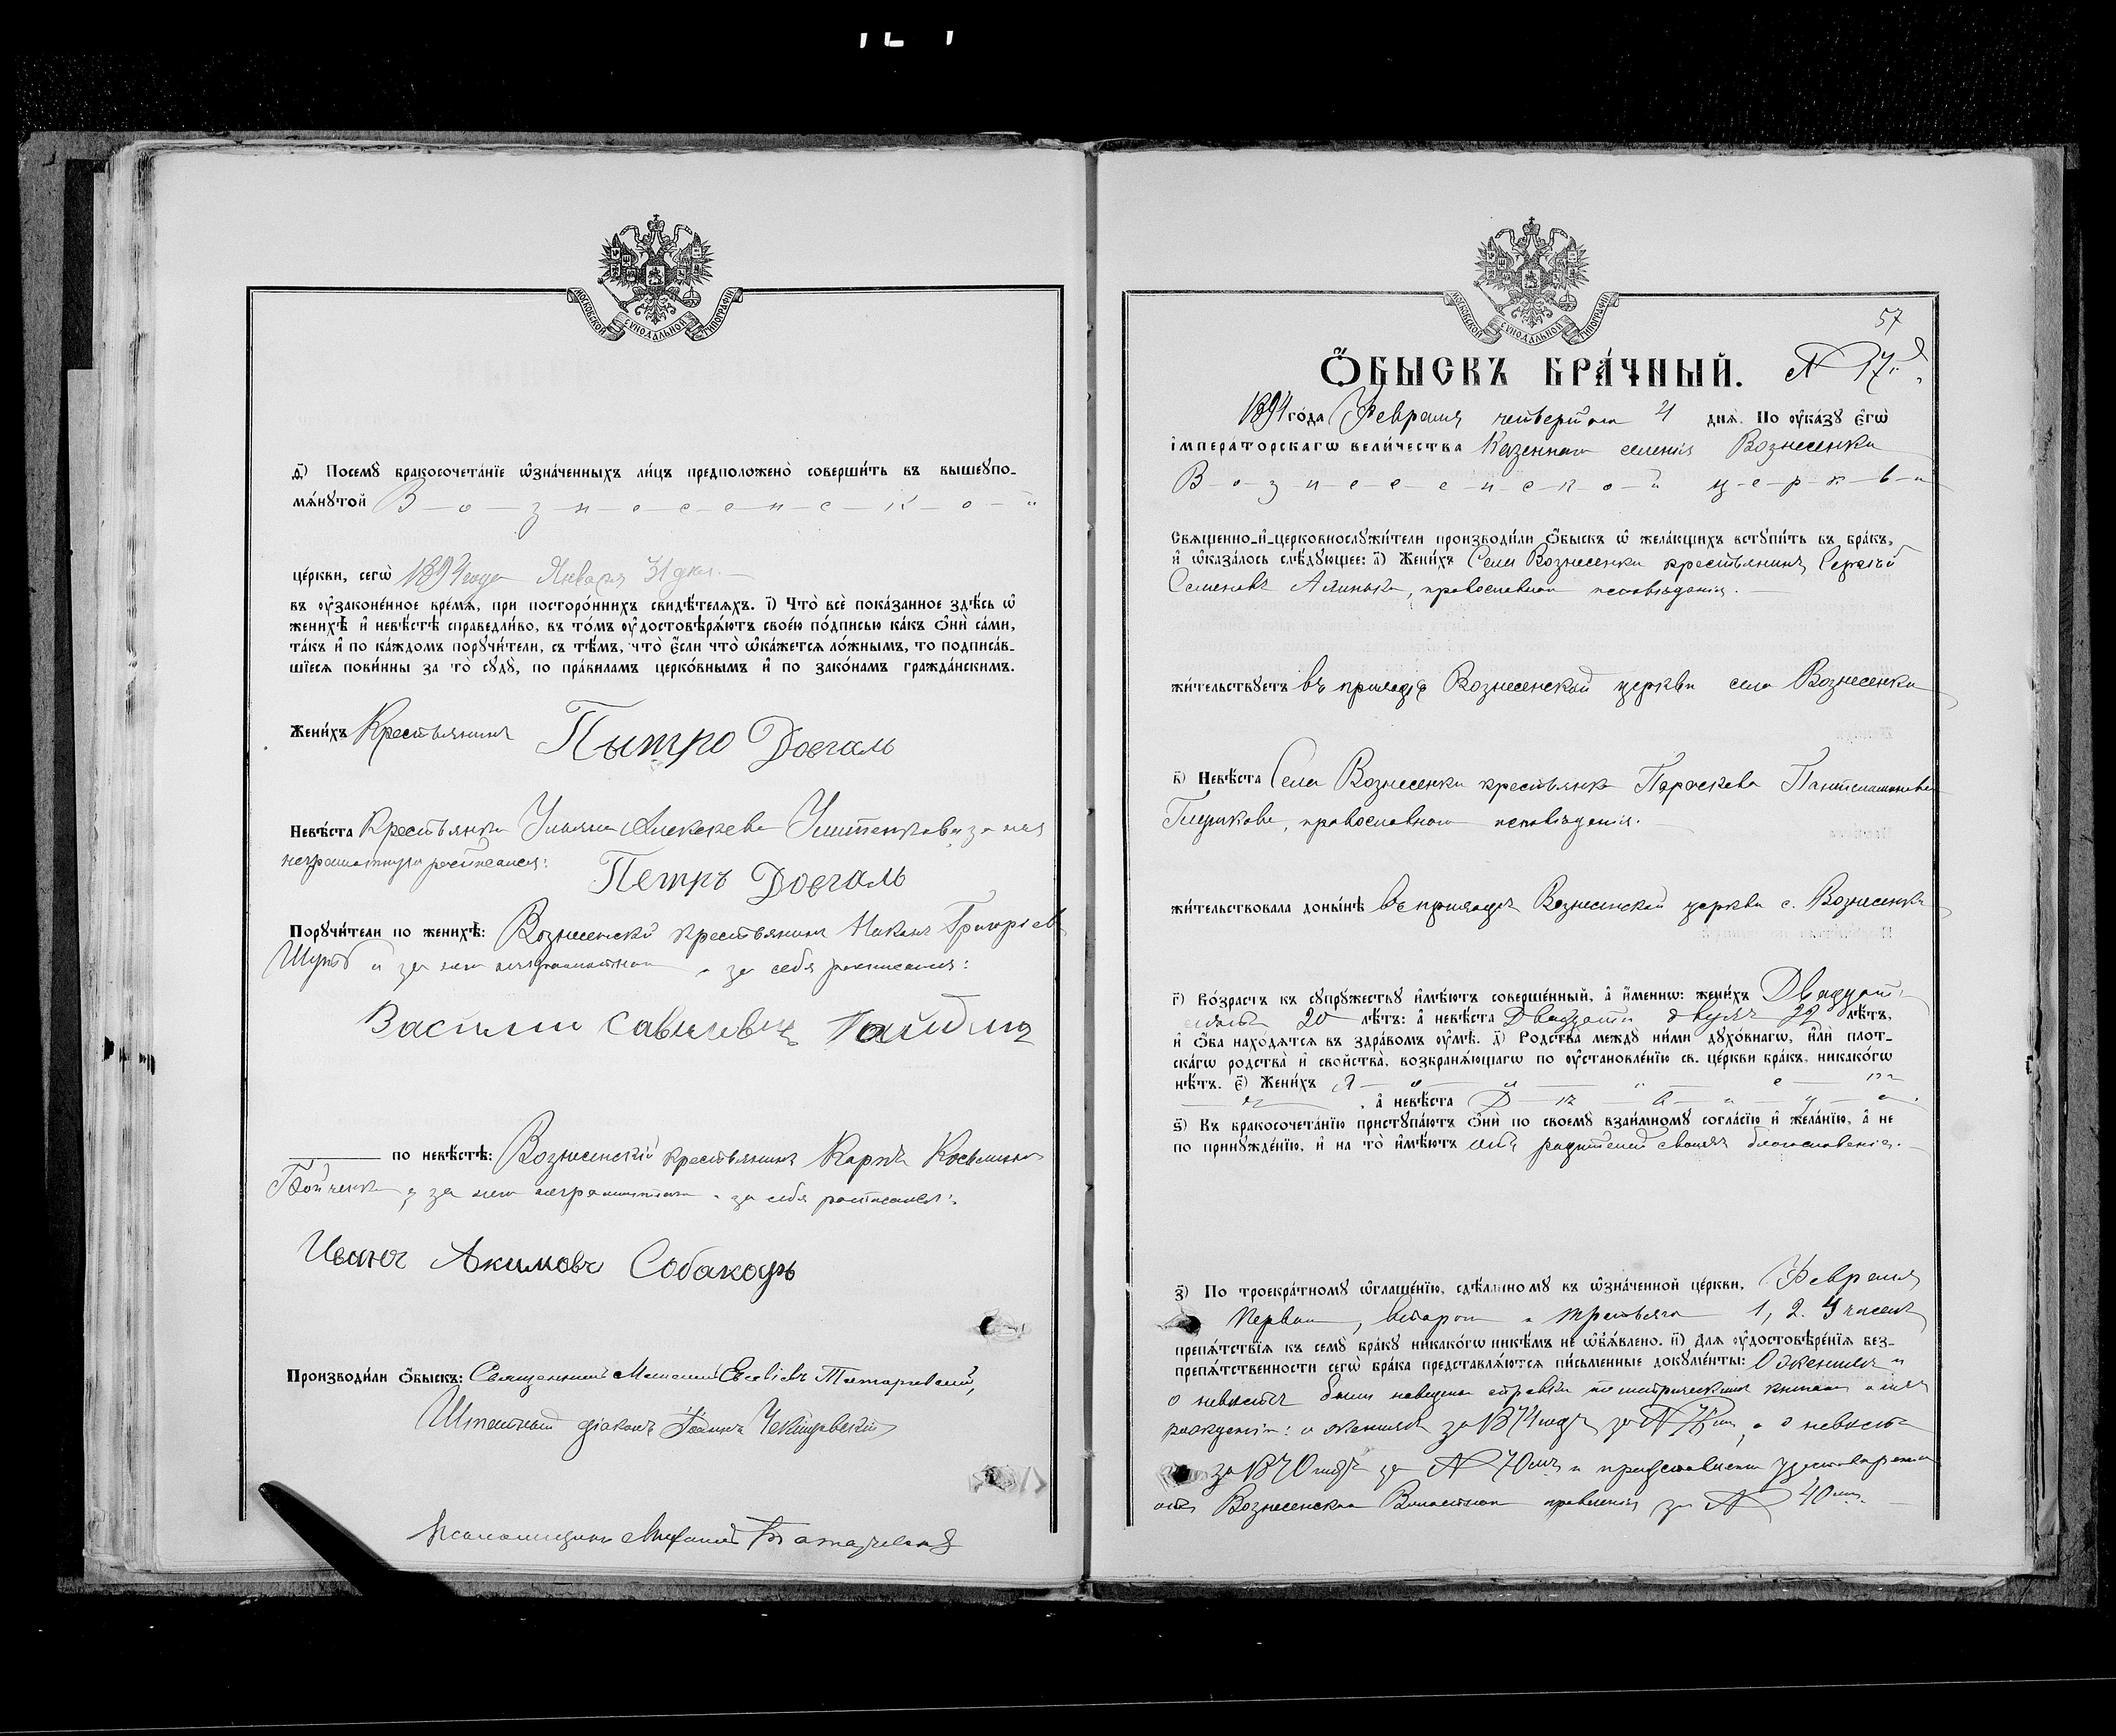 МОСКОВСКОЙ СѴНОДАЛЬНОЙ ТИПОГРАФІИ
ѳ҃) Посемꙋ бракосочета́нїе ѡ҆зна́ченныхъ ли́цъ предположено̀ соверши́ть въ вышеꙋпо-
мѧ́нꙋтой В-о-з-н-е-с-е-н-с-к-о-й
це́ркви, сегѡ̀ 1894 года Января 31 дня.
въ ᲂу҆законе́нное вре́мѧ, при посторо́ннихъ свидѣ́телѧхъ. і҃) Что̀ всѐ пока́занное здѣ́сь ѡ҆
женихѣ̀ и҆ невѣ́стѣ справедли́во, въ то́мъ ᲂу҆достовѣрѧ́ютъ свое́ю по́дписью ка́къ ѻ҆нѝ са́ми,
та́къ и҆ по ка́ждомъ порꙋчи́тели, съ тѣ́мъ, что̀ є҆́сли что̀ ѡ҆ка́жетсѧ ло́жнымъ, то подписа́в-
шїесѧ пови́нны за то̀ сꙋдꙋ̀, по пра́виламъ церко́внымъ и҆ по зако́намъ гражда́нскимъ.
Жени́хъ Крестьянинъ Пытро Довгаль
Невѣ́ста Крестьянка Ульяна Алексѣева за нея
неграмотную росписался:
Петръ Довгаль
Порꙋчи́тели по женихѣ̀: Вознесенскій крестьянинъ Никонъ Григорьев
и за него неграмотнаго и за себя росписался:
Васили Савелевъ
по невѣ́стѣ: Вознесенскій крестьянинъ Карпъ Косьминъ
Бойченко и за него неграмотнаго и за себя росписался:
Иванъ Акимовъ Собакарь
Производи́ли ѻ҆́быскъ: Священникъ Евсевіевъ
Штатный діаконъ Іоаннъ
Псаломщикъ
МОСКОВСКОЙ СѴНОДАЛЬНОЙ ТИПОГРАФІИ
57
Ѻ҆́БЫСКЪ БРА́ЧНЫЙ. № 17й
1894 го́да Февраля четвертаго 4 днѧ̀. По ᲂу҆ка́зꙋ є҆гѡ̀
і҆мпера́торскагѡ вели́чества Казеннаго селенія Вознесенки
В-о-з-н-е-с-е-н-с-к-о-й ц-е-р-к-в-и
Свѧще́нно-и҆-церковнослꙋжи́тели производи́ли ѻ҆́быскъ ѡ҆ жела́ющихъ встꙋпи́ть въ бра́къ,
и҆ ѡ҆каза́лось слѣ́дꙋющее: а҃) Жени́хъ Села Вознесенки крестьянинъ Сергѣй
Семеновъ, православнаго исповѣданія.
жи́тельствꙋетъ въ приходѣ Вознесенской церкви села Вознесенки
в҃) Невѣ́ста Села Вознесенки крестьянка Параскева Пантелеимонова
православнаго исповѣданія.
жи́тельствовала доны́нѣ въ приходѣ Вознесенской церкви с. Вознесенки
г҃) Во́зрастъ къ сꙋпрꙋ́жествꙋ и҆мѣ́ютъ соверше́нный, а҆ и҆́меннѡ: жени́хъ Двадцати
20 лѣ́тъ: а҆ невѣ́ста Двадцати двухъ 22 лѣ́тъ,
и҆ ѻ҆́ба нахо́дѧтсѧ въ здра́вомъ ᲂу҆мѣ̀. д҃) Родства̀ междꙋ̀ ни́ми дꙋхо́внагѡ, и҆лѝ плот-
ска́гѡ родства̀ и҆ сво́йства, возбранѧ́ющагѡ по ᲂу҆становле́нїю св. це́ркви бра́къ, никако́гѡ
нѣ́тъ. є҃) Жени́хъ
, а҆ невѣ́ста
ѕ҃) Къ бракосочета́нїю пристꙋпа́ютъ ѻ҆нѝ по своемꙋ̀ взаи́мномꙋ согла́сїю и҆ жела́нїю, а҆ не
по принꙋжде́нїю, и҆ на то̀ и҆мѣ́ютъ отъ родителей своихъ благословеніе.
з҃) По троекра́тномꙋ ѡ҆глаше́нїю, сдѣ́ланномꙋ въ ѡ҆зна́ченной це́ркви, Февраля
Перваго, втораго и третьяго 1, 2. чиселъ
препѧ́тствїѧ къ семꙋ̀ бра́кꙋ никако́гѡ никѣ́мъ не ѡ҆б̾ѧ́влено. и҃) Длѧ ᲂу҆достовѣре́нїѧ без-
препѧ́тственности сегѡ̀ бра́ка представлѧ́ютсѧ пи́сьменные докꙋме́нты: О женихѣ и
о невѣстѣ были наведены справки по метрическимъ книгамъ о ихъ
рожденіи: о женихѣ за 1874 годъ за № а о невѣстѣ
за 1870 годъ за № 70мъ и представлено удостовѣреніе
отъ Вознесенскаго Волостнаго правленія за № 40мъ.